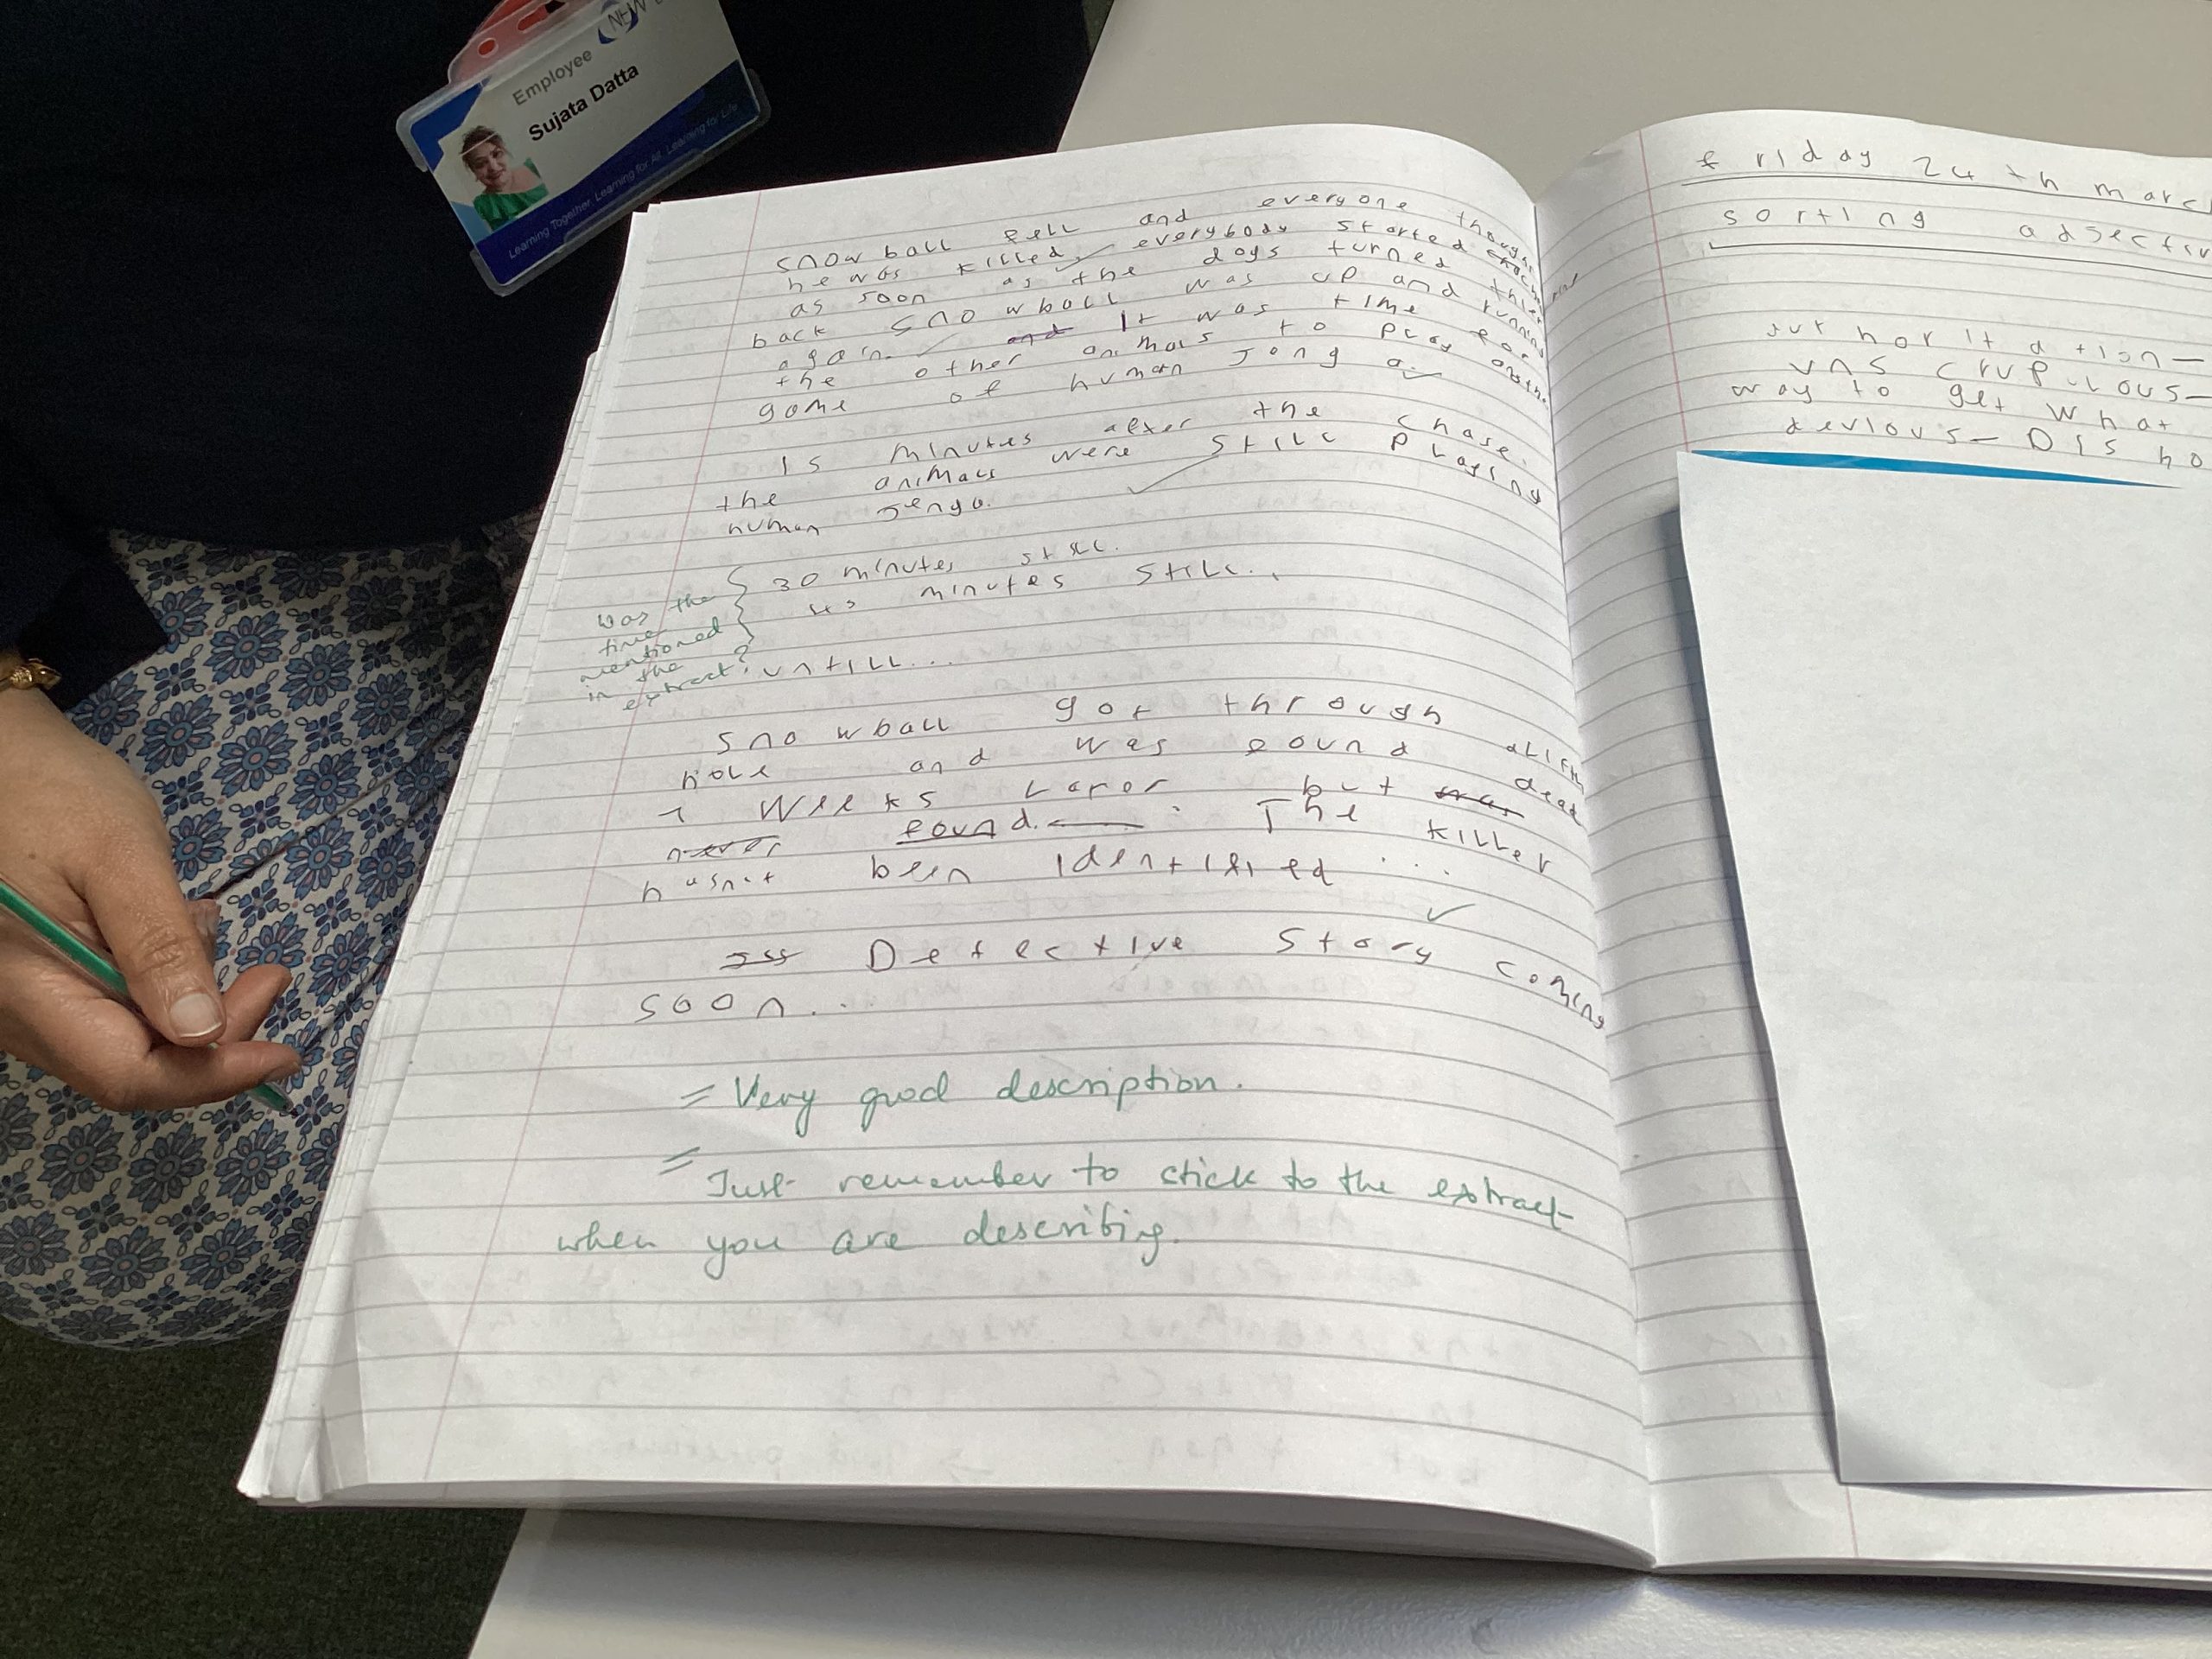 NEW
Employee
Sujata Datta
Learning Together. Learning for All. Learning for Life
snowball fell and everyone
he was killed, everybody started
as soon as the dogs turned
back snowball was up and running
again. and It was time for
the other animals to play
game of human
15 minutes after the chase.
the animals were still playing
human Jenga.
30 minutes still.
45 minutes still..
was the
time
mentioned
in the
extract?
untill...
snowball got through
hole and was found dead
7 weeks later but was
never found. The killer
hasn't been identified ...
Detective Story coming
soon...
= Very good description.
= Just remember to stick to the extract
when you are describing.
friday 24th march
sorting adjectiv
vnscrupulous-
way to get what
devious- Disho